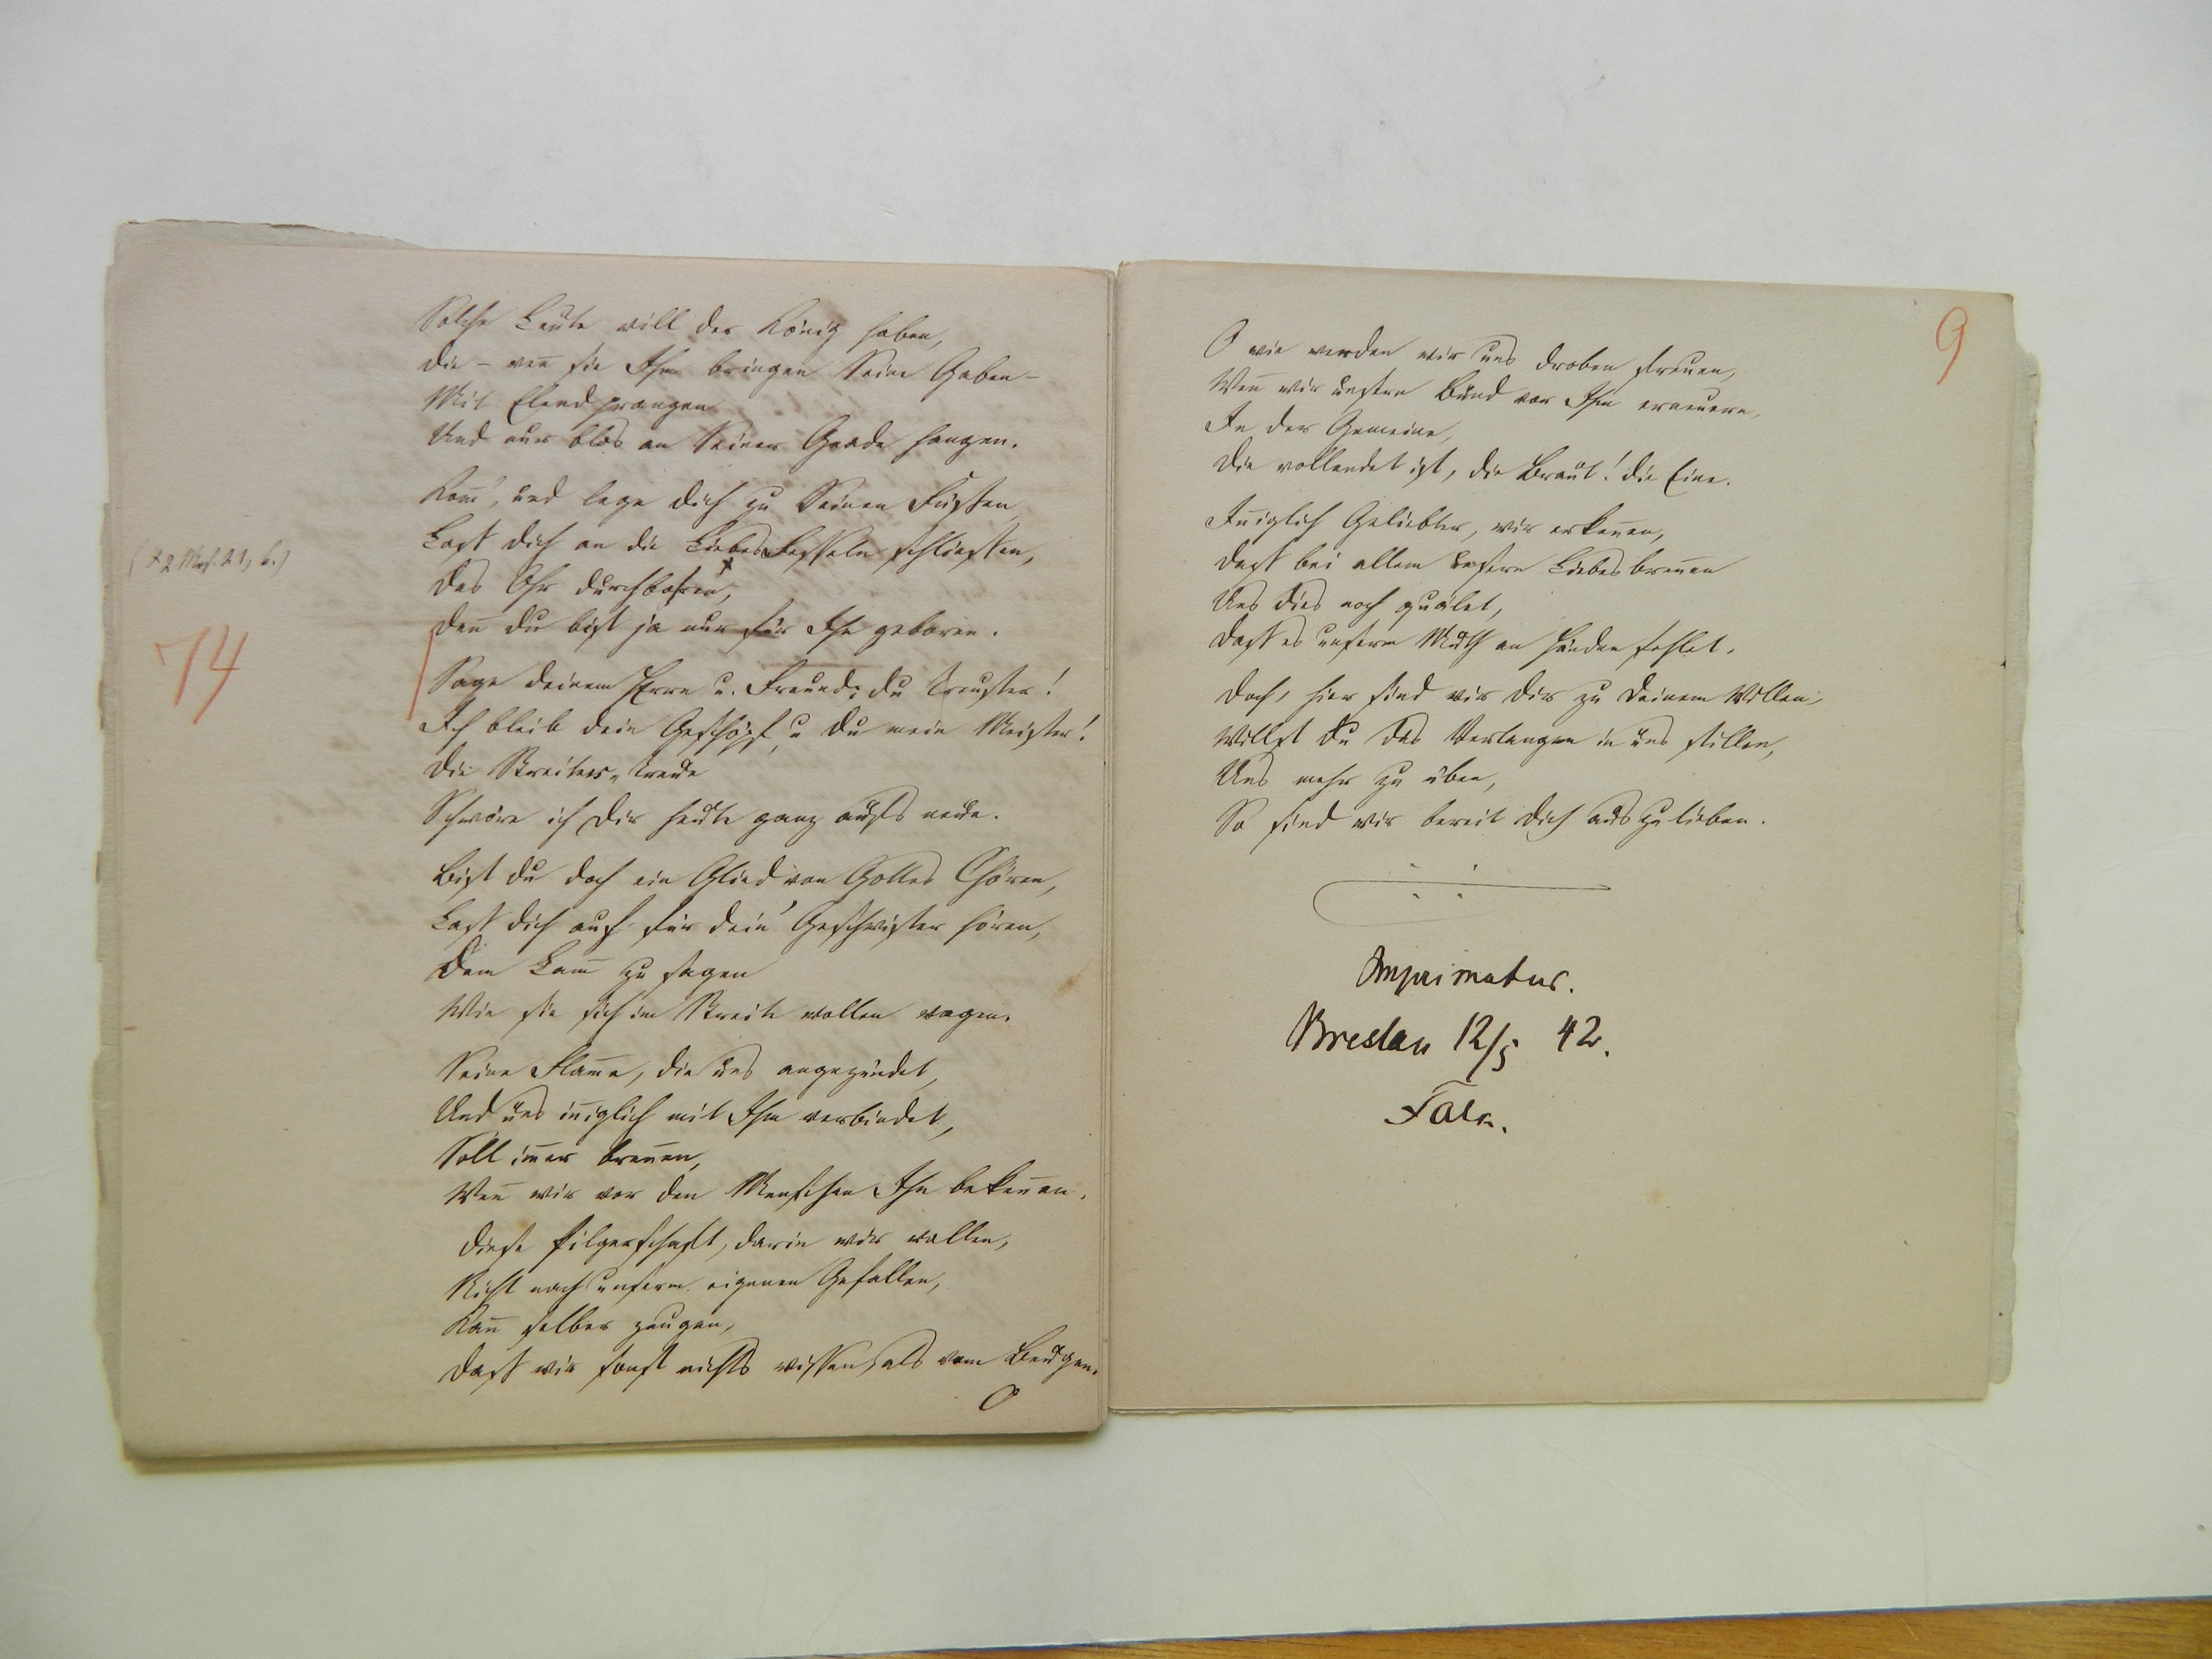 Solche Leute will der König haben,
die – weñ sie Ihm bringen Seine Gaben –
Mit Elend prangen
Und nur blos an Seiner Gnade hangen.
Kom̃', und lege dich zu Seinen Füßen,
Laß dich an die Liebesfesseln schließen,
(x 2 Mos. 21, 6.)
das Ohr durchbohren, x
Deñ du bist ja nur für Ihn geboren.
74
Sage deinem Herrn u. Freund: du treuster!
Ich bleib dein Geschöpf, u du mein Meister!
die Streiter-treue
Schwöre ich Dir heute ganz aufs neue.
Bist du doch ein Glied von Gottes Chören,
Laß dich auch für dein' Geschwister hören,
Dem Lam̃ zu sagen
Wie sie sich im Streite wollen wagen.
Seine Flam̃e, die uns angezündet,
Und uns iñiglich mit Ihm verbindet,
Soll im̃er breñen,
Weñ wir vor den Menschen Ihn bekeñen.
diese Pilgerschaft, darin wir wallen,
Nicht nach unserm eigenen Gefallen,
Kañ selber zeugen,
daß wir sonst nichts wissen, als vom Beugen.
O
9
O wie werden wir uns droben freuen,
Weñ wir unsern Bund vor Ihm erneuern,
In der Gemeine,
die vollendet ist, die Braut! die Eine.
Iñiglich Geliebter, wir erkeñen,
daß bei allem unserm Liebesbreñen
Uns dies noch quälet,
daß es unserm Muth an Händen fehlet.
doch, hier sind wir dir zu deinem Willen,
Willst Du das Verlangen in uns stillen,
Uns mehr zu üben,
So sind wir bereit dich auszulieben.
Imprimatur.
Breslau 12/5 42.
Falk.